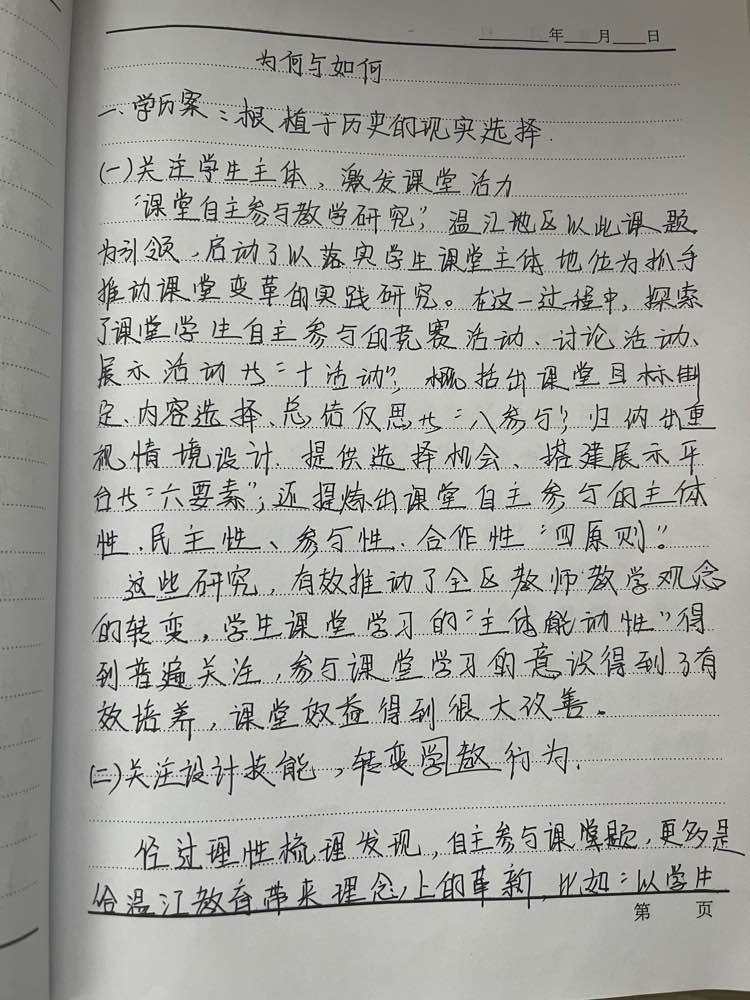 年 月 日
为何与如何
一、学历案：根植于历史的现实选择.
(一)关注学生主体，激发课堂活力
“课堂自主参与教学研究”，温江地区以此课题
为引领，启动了以落实学生课堂主体地位为抓手
推动课堂变革的实践研究。在这一过程中，探索
了课堂学生自主参与的竞赛活动、讨论活动、
展示活动等“十活动”，概括出课堂目标制
定、内容选择、总结反思等“八参与”，归纳出重
视情境设计、提供选择机会、搭建展示平
台等“六要素”，还提炼出课堂自主参与的主体
性、民主性、参与性、合作性“四原则”。
这些研究，有效推动了全区教师教学观念
的转变，学生课堂学习的“主体能动性”得
到普遍关注，参与课堂学习的意识得到了有
效培养，课堂效益得到很大改善。
(二)关注设计技能，转变学教行为.
经过理性梳理发现，自主参与课堂题，更多是
给温江教育带来理念上的革新，比如：以学生
第 页